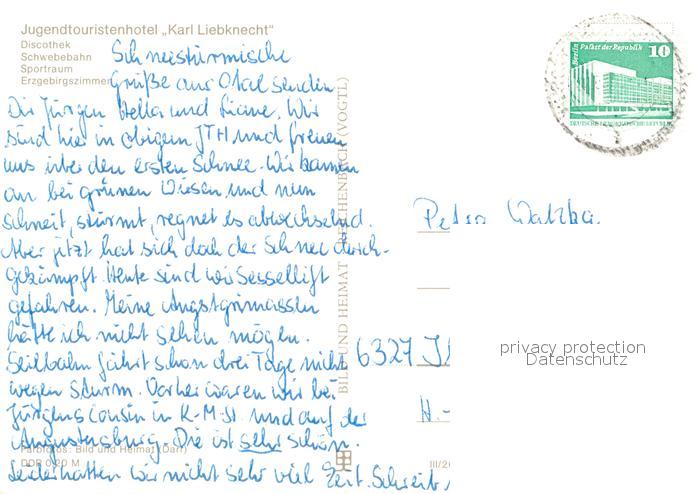 Jugendtouristenhotel „Karl Liebknecht“
Discothek
Schwebebahn
Sportraum
Erzgebirgszimmer
Schneestürmische
Grüße aus Otal senden
Dir Jürgen Hella und Liane. Wir
sind hier in obigem JTH und freuen
uns über den ersten Schnee. Wir kamen
an bei grünen Wiesen und nun
schneit, stürmt, regnet es abwechselnd.
Aber jetzt hat sich doch der Schnee durch-
gekämpft. Heute sind wir Sessellift
gefahren. Meine Angstgrimassen
hätte ich nicht sehen mögen.
Seilbahn fährt schon drei Tage nicht
wegen Sturm. Vorher waren wir bei
Jürgens Cousin in K-M-St und auf der
Augustusburg. Die ist sehr schön.
Leider hatten wir nicht sehr viel Zeit. Schreib
Farbfotos: Bild und Heimat (Darr)
DDR 0,20 M
BILD UND HEIMAT REICHENBACH (VOGTL)
III/2
Berlin Palast der Republik 10
DEUTSCHE DEMOKRATISCHE REPUBLIK
Petra
6327
H.-
privacy protection
Datenschutz